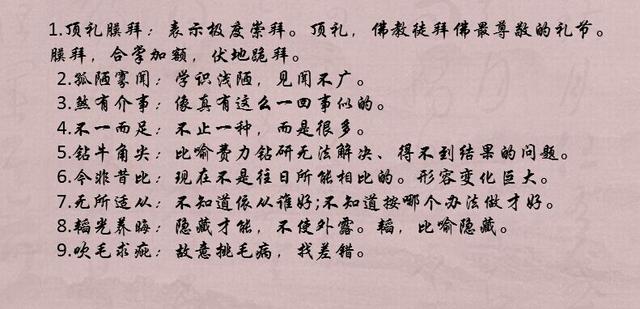 1.顶礼膜拜：表示极度崇拜。顶礼，佛教徒拜佛最尊敬的礼节。
膜拜，合掌加额，伏地跪拜。
2.孤陋寡闻：学识浅陋，见闻不广。
3.煞有介事：像真有这么一回事似的。
4.不一而足：不止一种，而是很多。
5.钻牛角尖：比喻费力钻研无法解决、得不到结果的问题。
6.今非昔比：现在不是往日所能相比的。形容变化巨大。
7.无所适从：不知道依从谁好;不知道按哪个办法做才好。
8.韬光养晦：隐藏才能，不使外露。韬，比喻隐藏。
9.吹毛求疵：故意挑毛病，找差错。